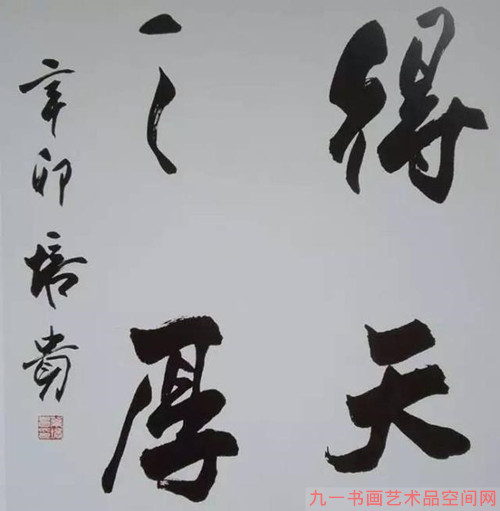 得天
之厚
辛卯培贵
九一书画艺术品空间网